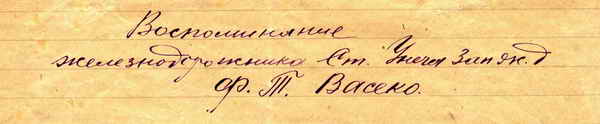 Воспоминание
железнодорожника Ст. Унеча Зап ж.д
Ф. Т. Васеко.